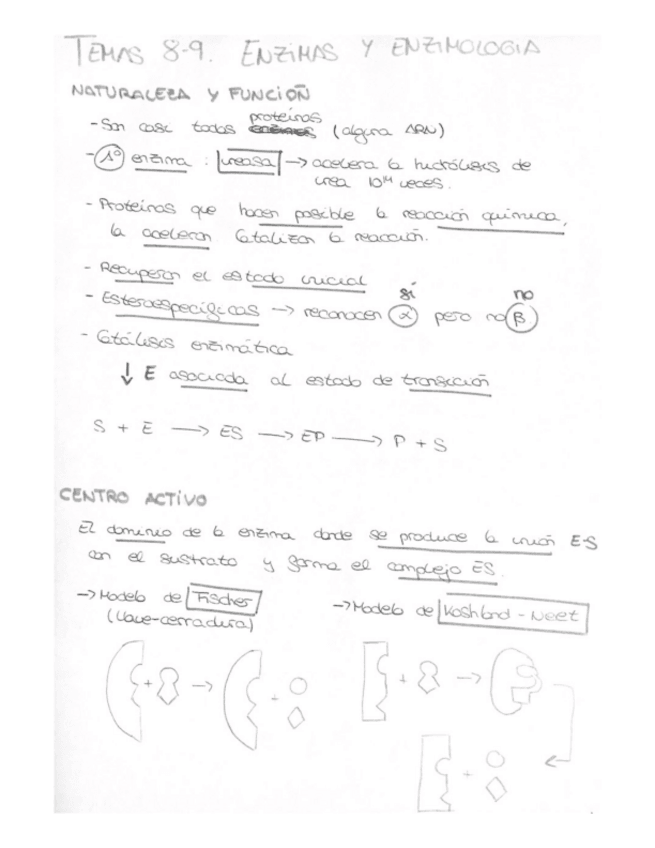 TEMAS 8-9. ENZIMAS Y ENZIMOLOGIA
NATURALEZA Y FUNCIÓN
proteínas
- Son casi todas enzimas (alguna ARN)
- 1º enzima : ureasa → acelera la hidrólisis de
urea 10¹⁴ veces.
- Proteínas que hacen posible la reacción química,
la aceleran. Catalizan la reacción.
- Recuperan el estado inicial
sí no
- Estereoespecíficas → reconocen α pero no β
- Catálisis enzimática
↓ E asociada al estado de transición
S + E → ES → EP → P + S
CENTRO ACTIVO
El dominio de la enzima donde se produce la unión E-S
con el sustrato y forma el complejo ES.
→ Modelo de Fischer
(llave-cerradura)
→ Modelo de Koshland - Neet
+ → +
+ →
+